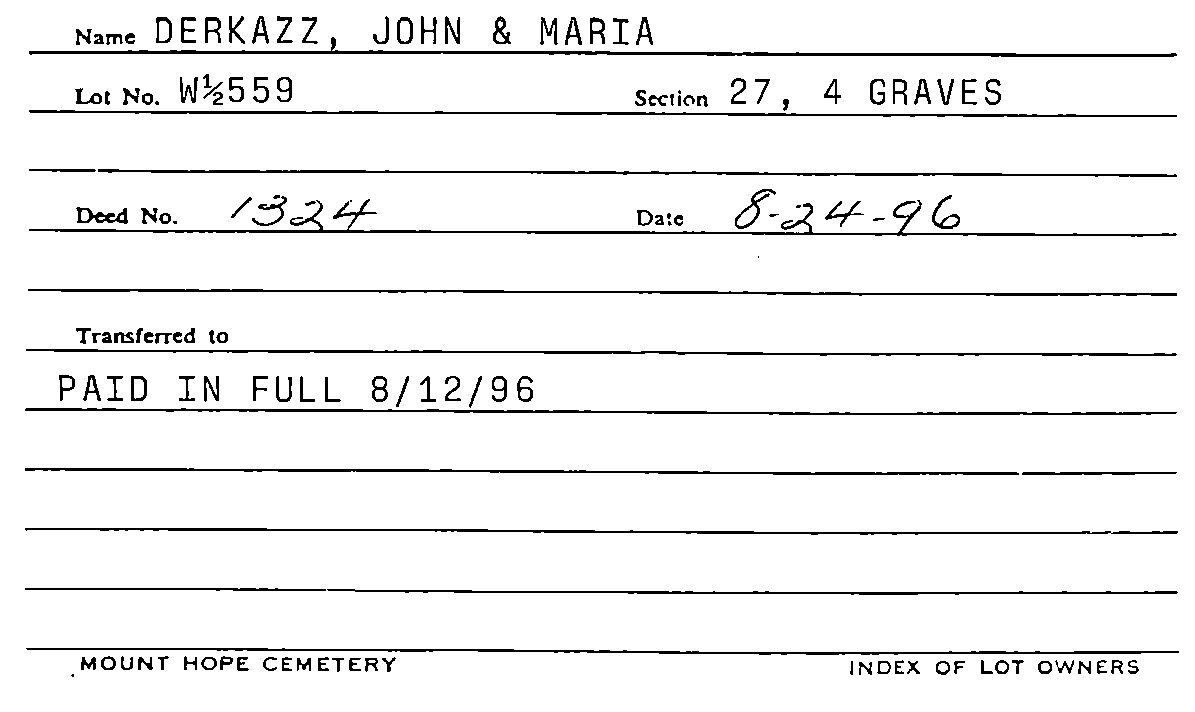 Name DERKAZZ, JOHN & MARIA
Lot No. W½559 Section 27, 4 GRAVES
Deed No. 1324 Date 8-24-96
Transferred to
PAID IN FULL 8/12/96
MOUNT HOPE CEMETERY INDEX OF LOT OWNERS